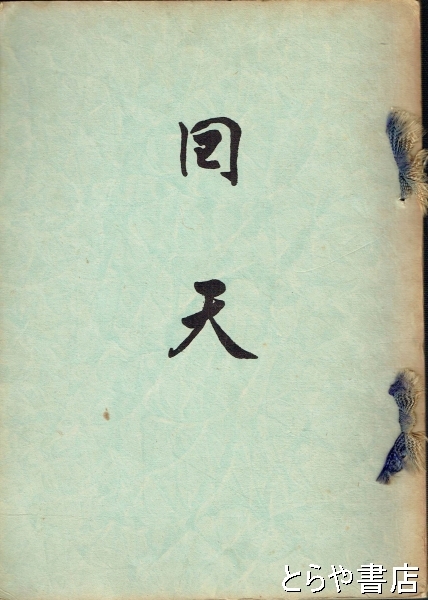 回
天
とらや書店